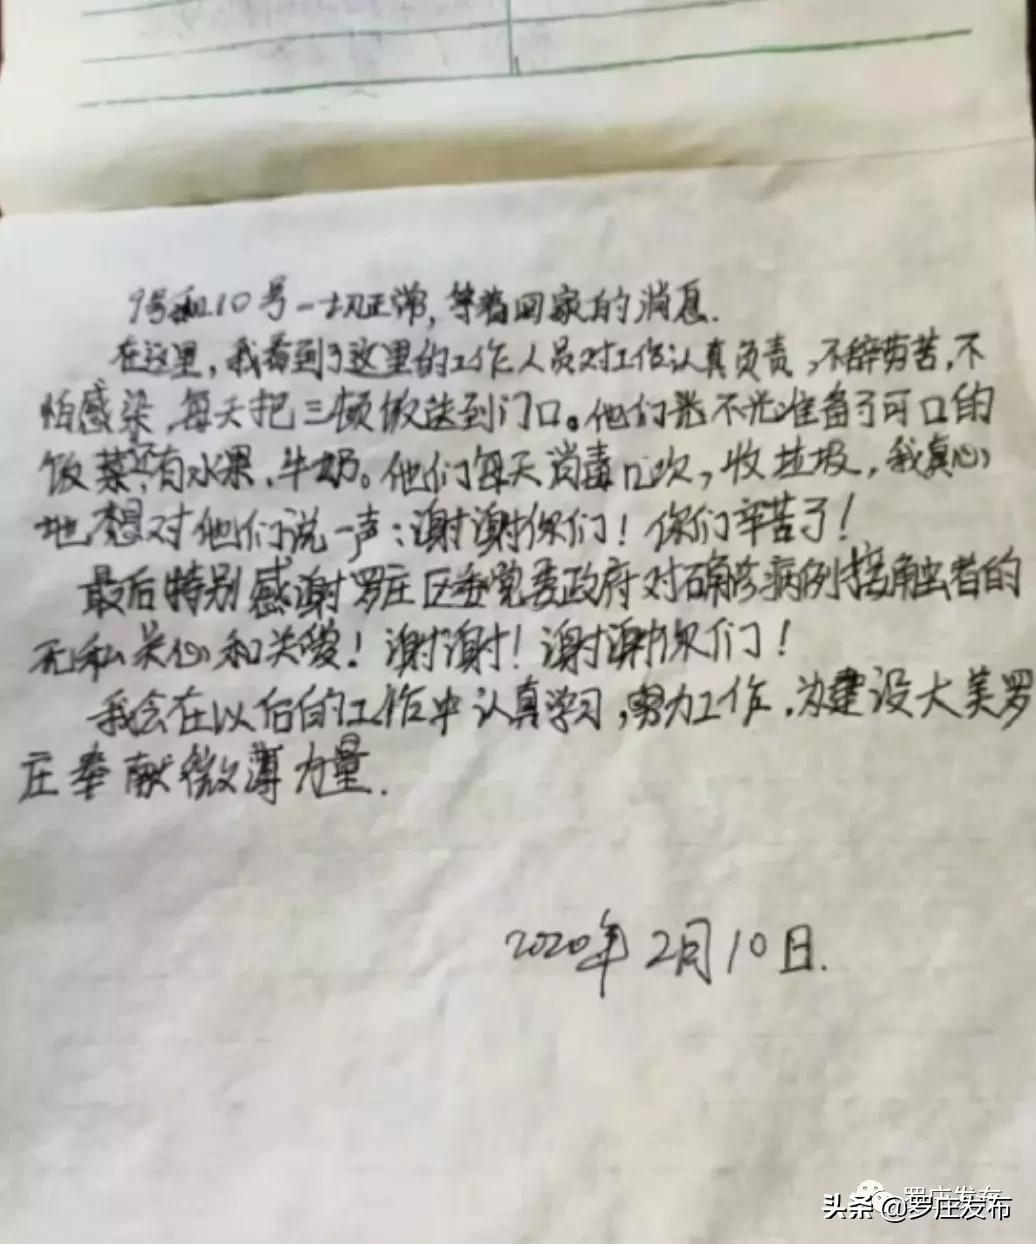 9号和10号一切正常,等着回家的消息.
在这里,我看到了这里的工作人员对工作认真负责,不辞劳苦,不
怕感染,每天把三顿饭送到门口。他们光不光准备了可口的
饭菜,还有水果、牛奶。他们每天消毒几次,收垃圾,我真心
地想对他们说一声:谢谢你们!你们辛苦了!
最后特别感谢罗庄区委党委政府对确诊病例接触者的
无私关心和关爱!谢谢!谢谢你们!
我会在以后的工作中认真学习,努力工作,为建设大美罗
庄奉献微薄力量.
2020年2月10日.
罗庄发布
头条@罗庄发布